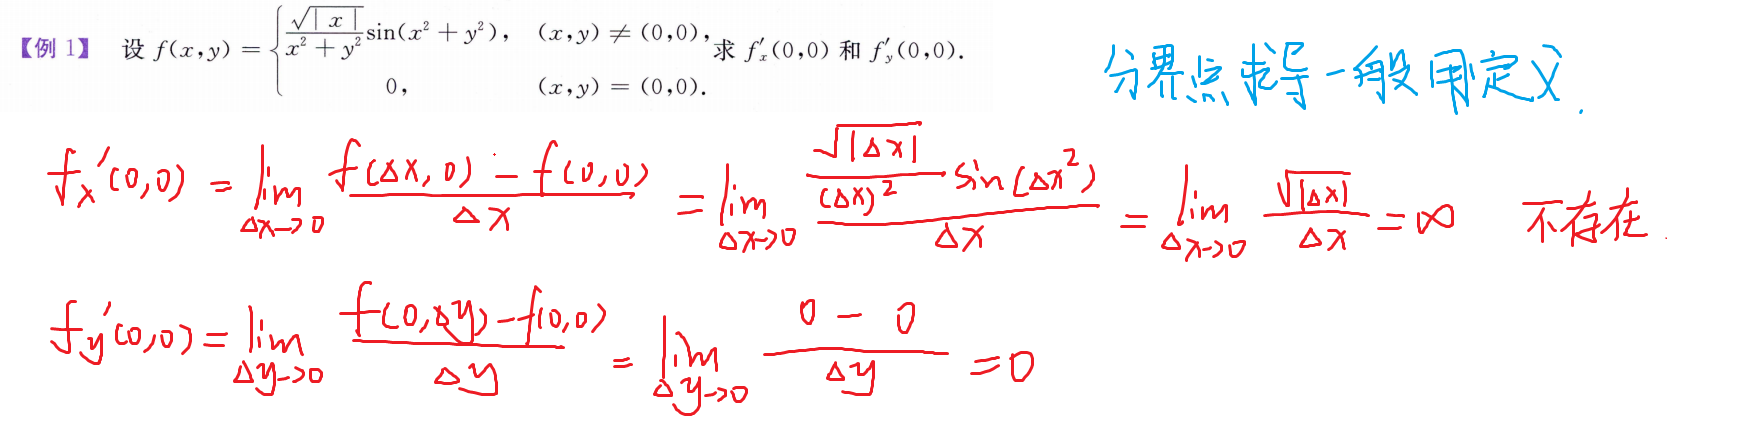 【例 1】 设 f(x,y) = { √|x| / (x² + y²) sin(x² + y²), (x,y) ≠ (0,0), 0, (x,y) = (0,0). 求 f′ₓ(0,0) 和 f′ᵧ(0,0).
分界点求导一般用定义.
fₓ′(0,0) = lim_{Δx→0} (f(Δx,0) − f(0,0)) / Δx = lim_{Δx→0} (√|Δx| / (Δx)² sin(Δx²)) / Δx = lim_{Δx→0} √|Δx| / Δx = ∞ 不存在.
fᵧ′(0,0) = lim_{Δy→0} (f(0,Δy) − f(0,0)) / Δy = lim_{Δy→0} (0 − 0) / Δy = 0